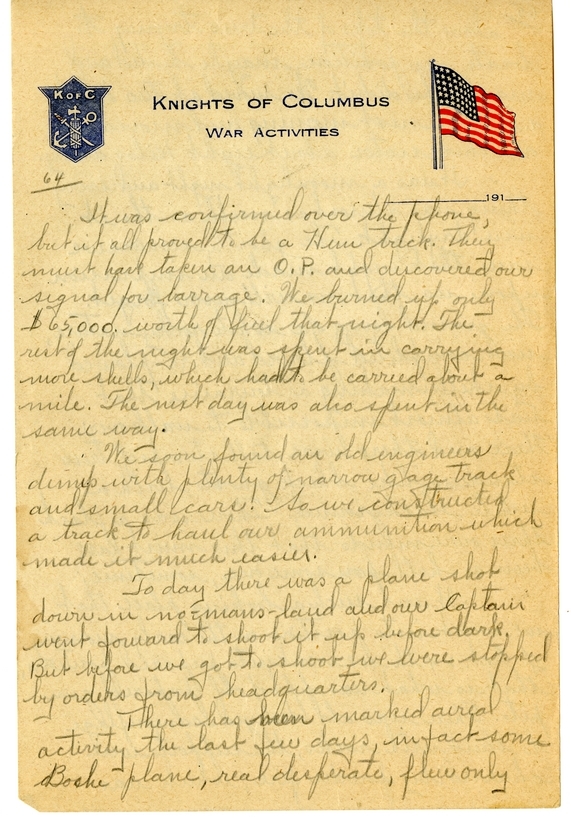 K of C
KNIGHTS OF COLUMBUS
WAR ACTIVITIES
64
191
It was confirmed over the phone,
but it all proved to be a Hun trick. They
must have taken an O.P. and discovered our
signal for barrage. We burned up only
$65,000. worth of fuel that night. The
rest of the night was spent in carrying
more shells, which had to be carried about a
mile. The next day was also spent in the
same way.
We soon found an old engineers
dump with plenty of narrow gage track
and small cars. So we constructed
a track to haul our ammunition which
made it much easier.
To day there was a plane shot
down in no-mans-land and our Captain
went forward to shoot it up before dark.
But before we got to shoot we were stopped
by orders from headquarters.
There has been marked aereal
activity the last few days, in fact some
Boshe plane, real desperate, flew only